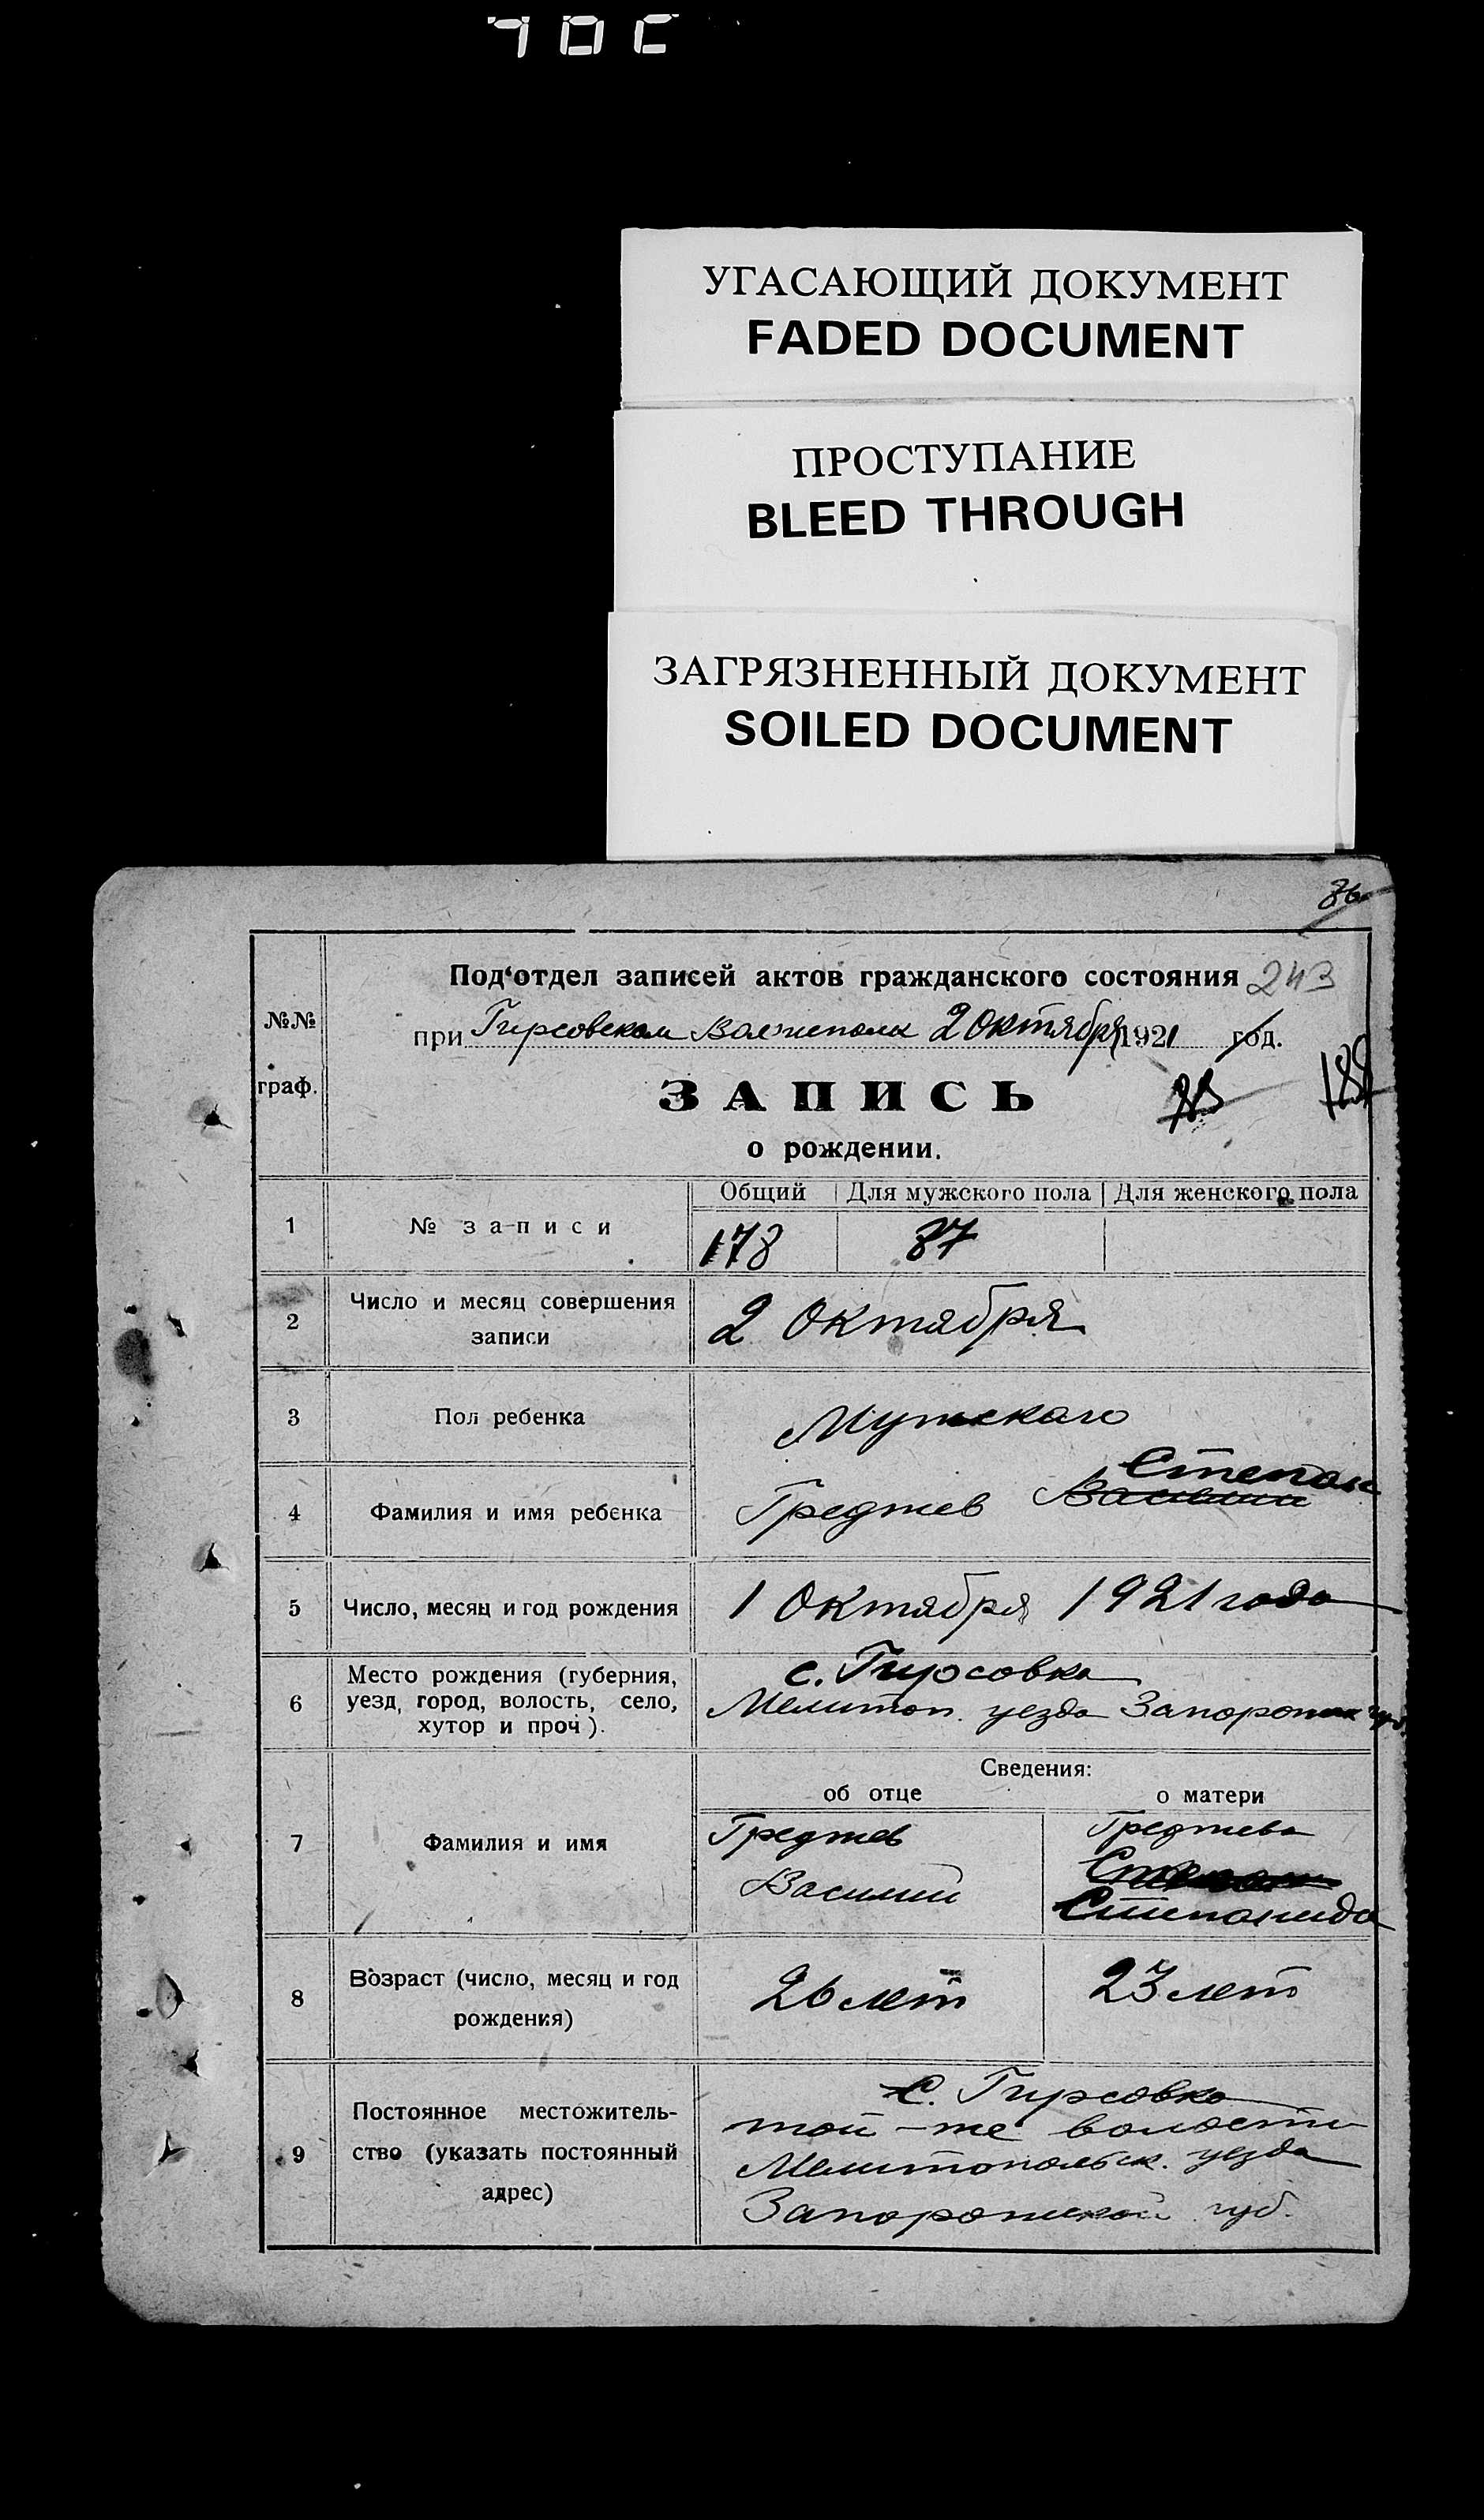 УГАСАЮЩИЙ ДОКУМЕНТ
FADED DOCUMENT
ПРОСТУПАНИЕ
BLEED THROUGH
ЗАГРЯЗНЕННЫЙ ДОКУМЕНТ
SOILED DOCUMENT
86
Под‘отдел записей актов гражданского состояния 243
№№ граф.
при Гирсовском Волисполк 2 октября 1921 год.
ЗАПИСЬ
188
о рождении.
Общий Для мужского пола Для женского пола
1 № записи 178 87
2 Число и месяц совершения записи 2 Октября
3 Пол ребенка Мужскаго
Степан
4 Фамилия и имя ребенка Греджев Василий
5 Число, месяц и год рождения 1 Октября 1921 года
6 Место рождения (губерния, уезд, город, волость, село, хутор и проч). с. Гирсовка
Мелитоп. уезда Запорожск губ.
Сведения:
об отце о матери
7 Фамилия и имя Греджев Греджева
Василий
Степанида
8 Возраст (число, месяц и год рождения) 26 лет 23 лет
9 Постоянное местожитель-
ство (указать постоянный
адрес)
С. Гирсовка
той-же волости
Мелитопольск. уезда
Запорожской губ.